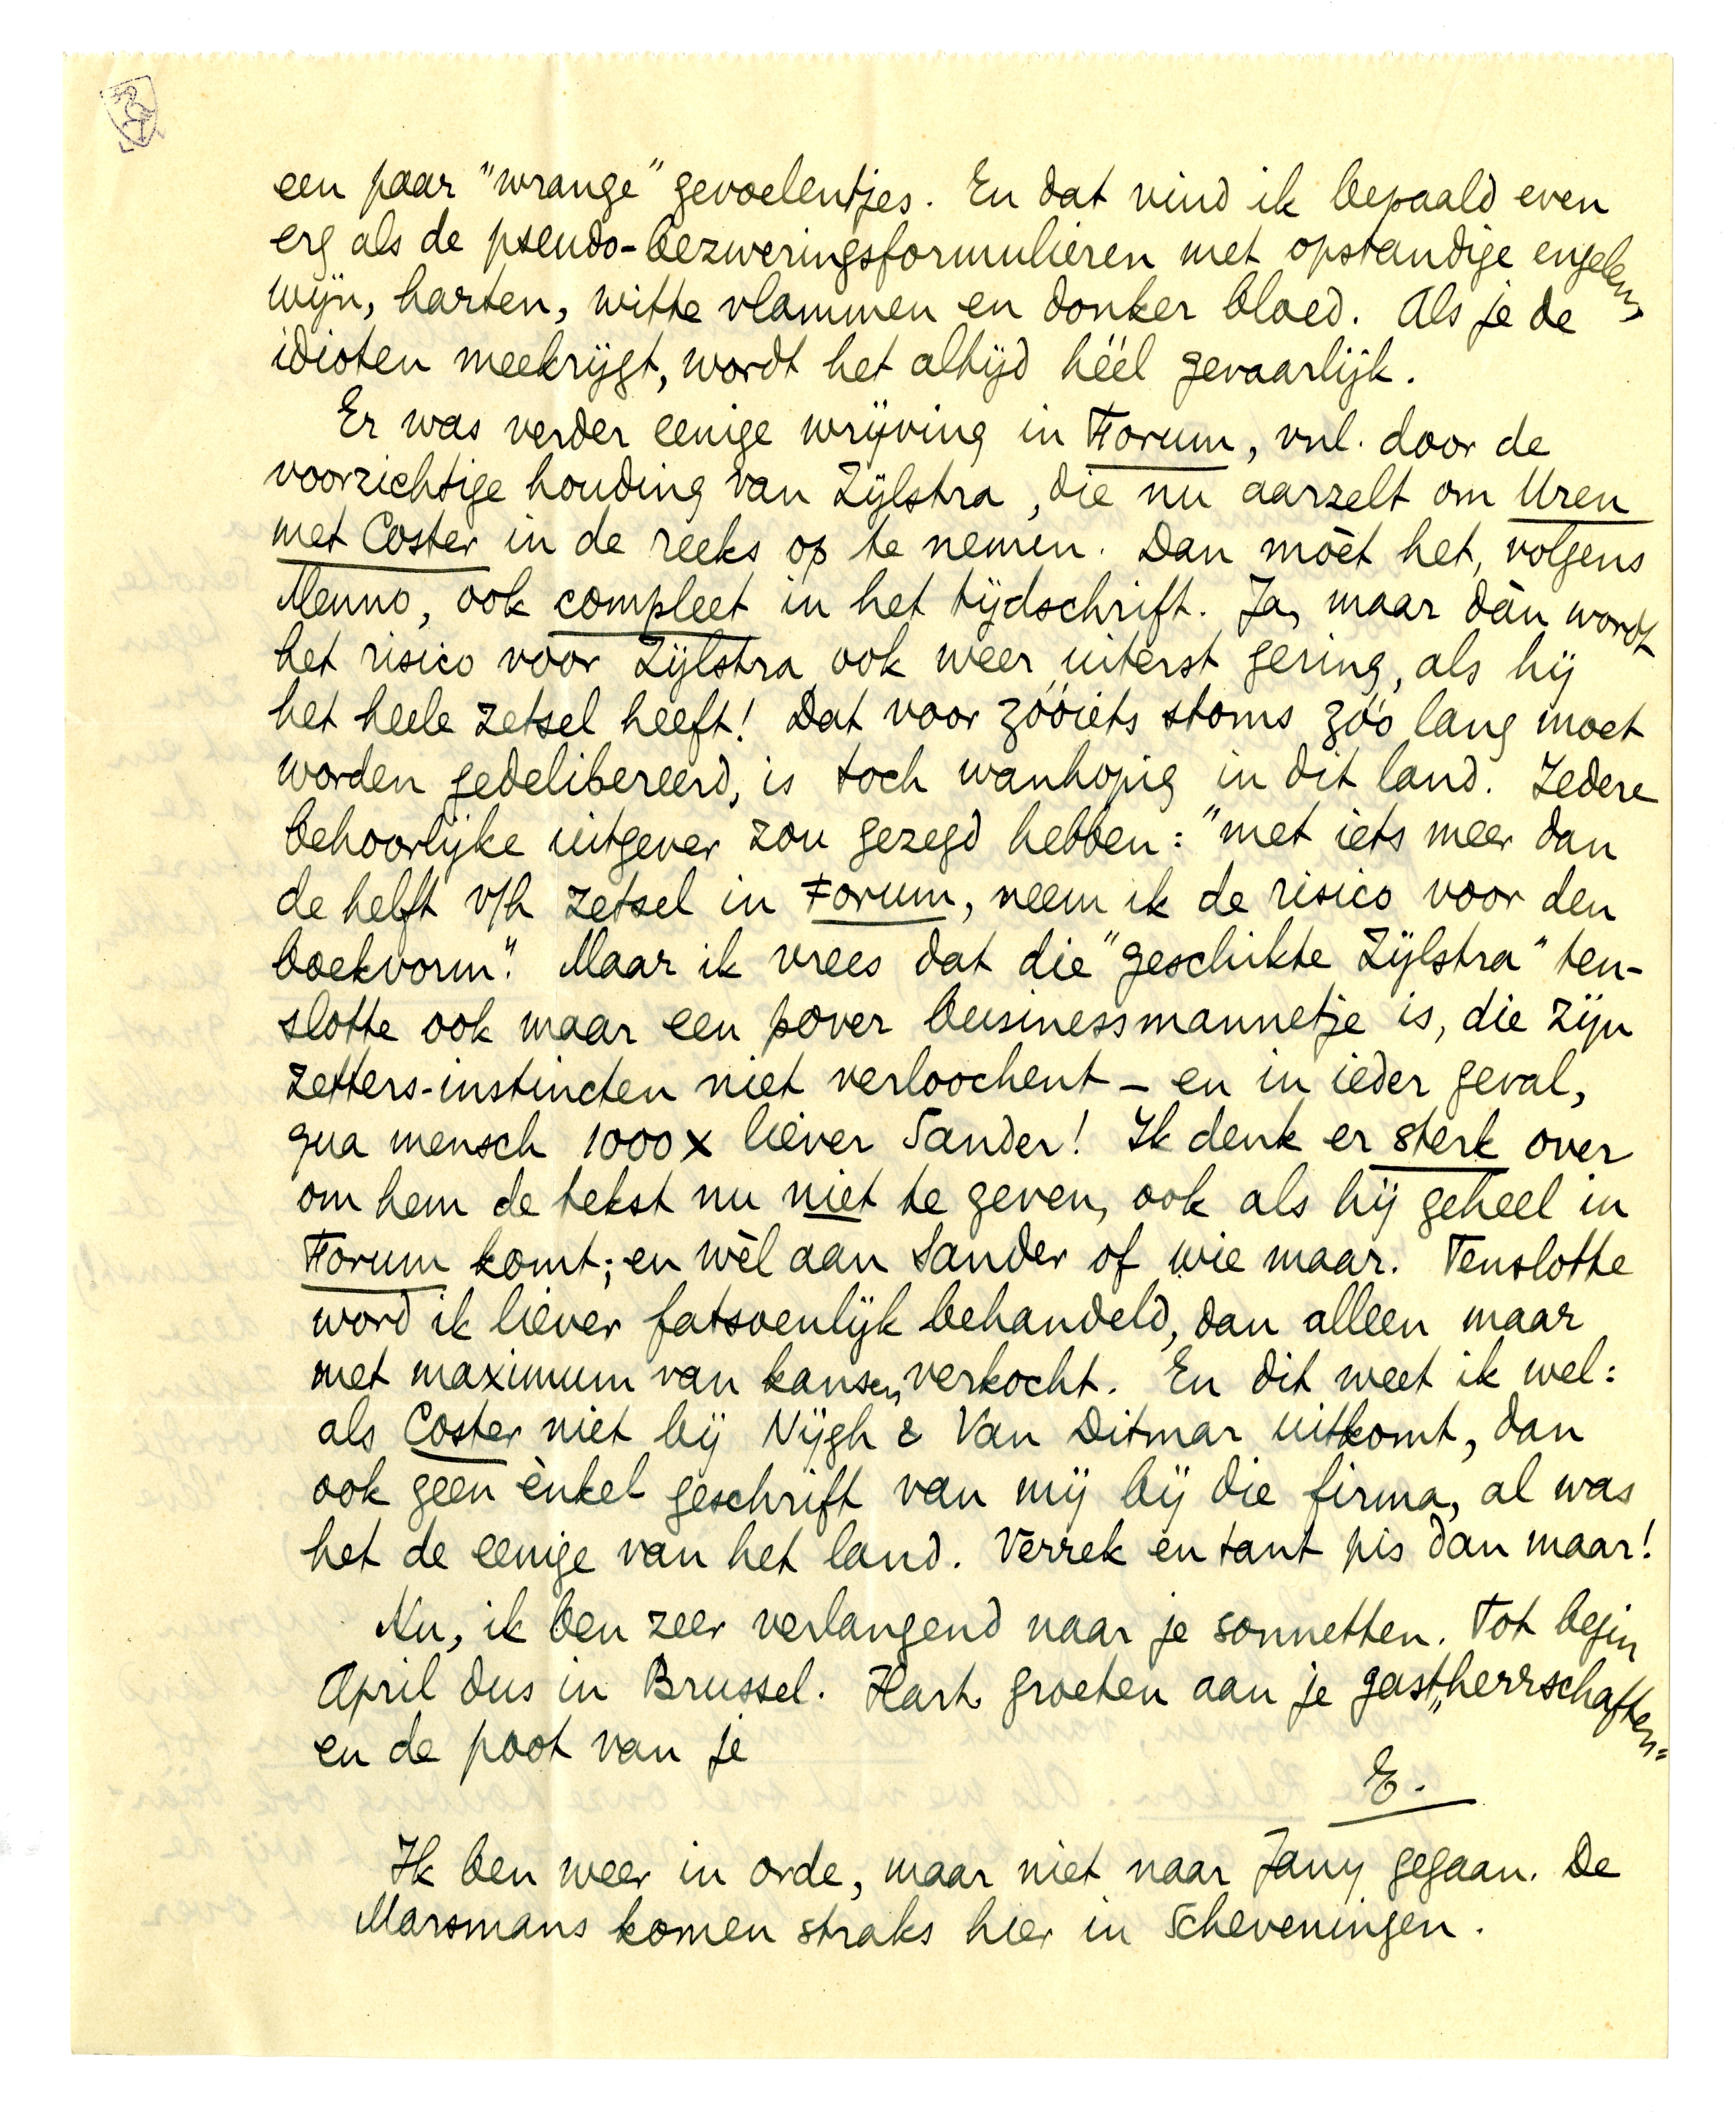 een paar "wrange" gevoelentjes. En dat vind ik bepaald even
erg als de pseudo-bezweringsformulieren met opstandige engelen,
wijn, harten, witte vlammen en donker bloed. Als je de
idioten meekrijgt, wordt het altijd héél gevaarlijk.
Er was verder eenige wrijving in Forum, vnl. door de
voorzichtige houding van Zijlstra, die nu aarzelt om Uren
met Coster in de reeks op te nemen. Dan mòèt het, volgens
Menno, ook compleet in het tijdschrift. Ja, maar dàn wordt
het risico voor Zijlstra ook weer uiterst gering, als hij
het heele zetsel heeft! Dat voor zóóiets stoms zóó lang moet
worden gedelibereerd, is toch wanhopig in dit land. Iedere
behoorlijke uitgever zou gezegd hebben: "met iets meer dan
de helft v/h zetsel in Forum, neem ik de risico voor den
boekvorm." Maar ik vrees dat die "geschikte Zijlstra" ten-
slotte ook maar een pover businessmannetje is, die zijn
zetters-instincten niet verloochent – en in ieder geval,
qua mensch 1000 x liever Sander! Ik denk er sterk over
om hem de tekst nu niet te geven, ook als hij geheel in
Forum komt; en wèl aan Sander of wie maar. Tenslotte
word ik liever fatsoenlijk behandeld, dan alleen maar
met maximum van kansen, verkocht. En dit weet ik wel:
als Coster niet bij Nijgh & Van Ditmar uitkomt, dan
ook geen ènkel geschrift van mij bij die firma, al was
het de eenige van het land. Verrek en tant pis dan maar!
Nu, ik ben zeer verlangend naar je sonnetten. Tot begin
April dus in Brussel. Hart. groeten aan je gast„herrschaften"
en de poot van je
E.
Ik ben weer in orde, maar niet naar Jany gegaan. De
Marsmans komen straks hier in Scheveningen.